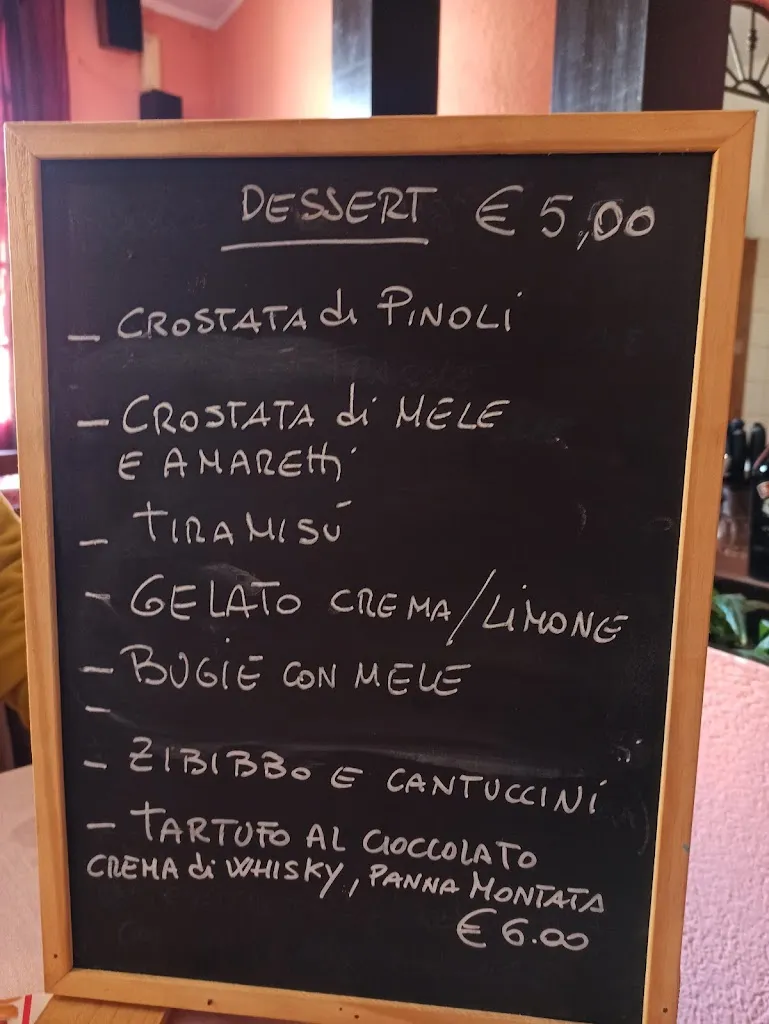 DESSERT € 5,00
- CROSTATA di PINOLI
- CROSTATA di MELE
E AMARETTI
- TIRAMISÙ
- GELATO CREMA/LIMONE
- BUGIE CON MELE
-
- ZIBIBBO E CANTUCCINI
- TARTUFO AL CIOCCOLATO
CREMA di WHISKY, PANNA MONTATA
€ 6.00